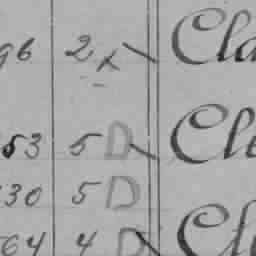 96 2 x Cla
53 5 D Cl
30 5 D
64 4 D Cl